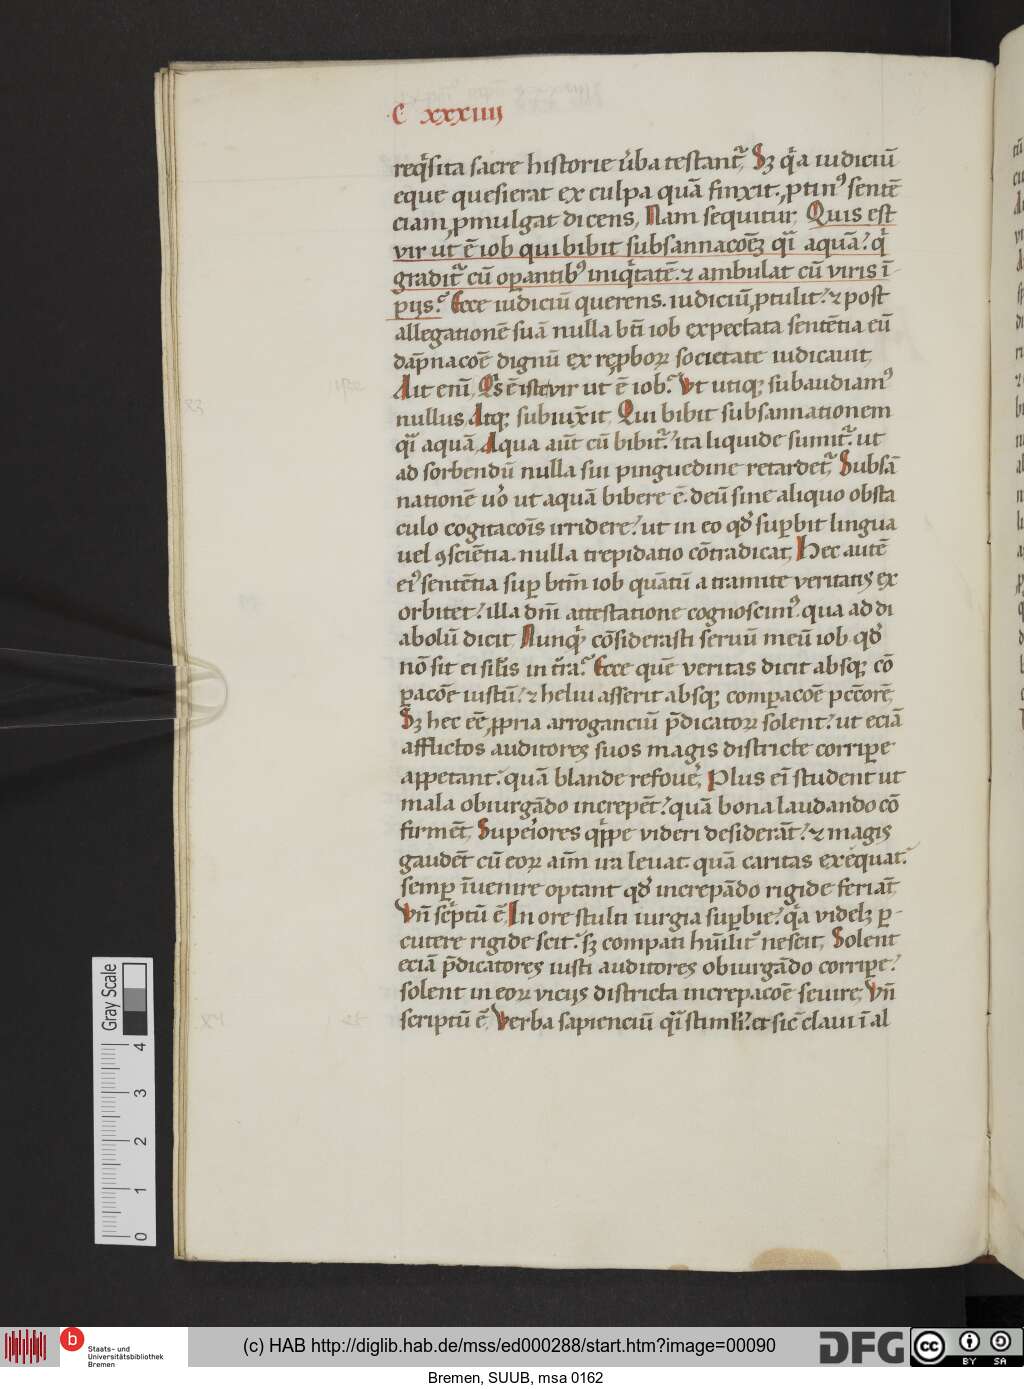 C xxxiiij
req̇sita sacre historie ṽba testant᷑. Sꝫ q̇a iudiciū
eque quesierat ex culpa quā finxit. ꝓtinꝰ sentē
ciam ꝓmulgat dicens, Nam sequitur Quis est
vir ut ē iob qui bibit subsannacōēꝫ qi̇ aquā? q̇
gradit᷑ cū oꝑantibꝰ iniq̇tatē. ⁊ ambulat cū viris ī-
pijs? Ecce iudiciū querens. iudiciū ꝓtulit? ⁊ post
allegationē suā nulla bt̄i iob expectata sentētia eū
dāpnacōē dignū ex reꝓboꝝ societate iudicauit
Ait enī, Qˢ ē iste vir ut ē iob? Vt utiqꝫ subaudiamꝰ
nullus Atqꝫ subiūxit Qui bibit subsannationem
qi̇ aquā, Aqua aūt cū bibit᷑? ita liquide sumit᷑. ut
ad sorbendū nulla sui pinguedine retardet᷑, Subsā
nationē uo̊ ut aquā bibere ē. deū sine aliquo obsta
culo cogitacōīs irridere? ut in eo qd̕ suꝑbit lingua
uel ꝯsciētia. nulla trepidatio cōtradicat, Hec autē
eiꝰ sentētia suꝑ btm̄ iob quātū a tramite veritatis ex
orbitet? illa dn̄i attestatione cognoscimꝰ. qua ad di
abolū dicit Nunq̇ cōsiderasti seruū meū iob. qd̕
nō sit ei sil̄is in t̄ra? Ecce quē veritas dicit absqꝫ cō
ꝑacōē iustū? ⁊ heliu asserit absqꝫ comꝑacōē pc̄cōrē,
Sꝫ hec eē ꝓpria arroganciū p̄dicatoꝝ solent? ut eciā
afflictos auditores suos magis districte corriꝑe
appetant? quā blande refouē, Plus ei̅ student ut
mala obiurgādo increpēt? quā bona laudando cō
firmēt, Supeiores qi̇ppe videri desiderāt? ⁊ magis
gaudēt cū eoꝝ aīm ira leuat. quā caritas exequat?
semꝑ īuenire optant qd̕ increpādo rigide feriāt,
Vn̄ sc̄ptū ē, In ore stulti iurgia suꝑbie? q̇a videlꝫ ꝑ-
cutere rigide scit? sꝫ compati hūilit᷑ nescit, Solent
eciā p̄dicatores iusti auditores obiurgādo corriꝑe?
solent in eoꝝ vicijs districta increpacōē seuire, Vn̄
scriptū ē, Verba sapienciū qi̇ stimli̅? et sic̄ claui ī al
Gray Scale
4
3
2
1
0
b
Staats- und
Universitätsbibliothek
Bremen
(c) HAB http://diglib.hab.de/mss/ed000288/start.htm?image=00090
DFG
cc
BY SA
Bremen, SUUB, msa 0162